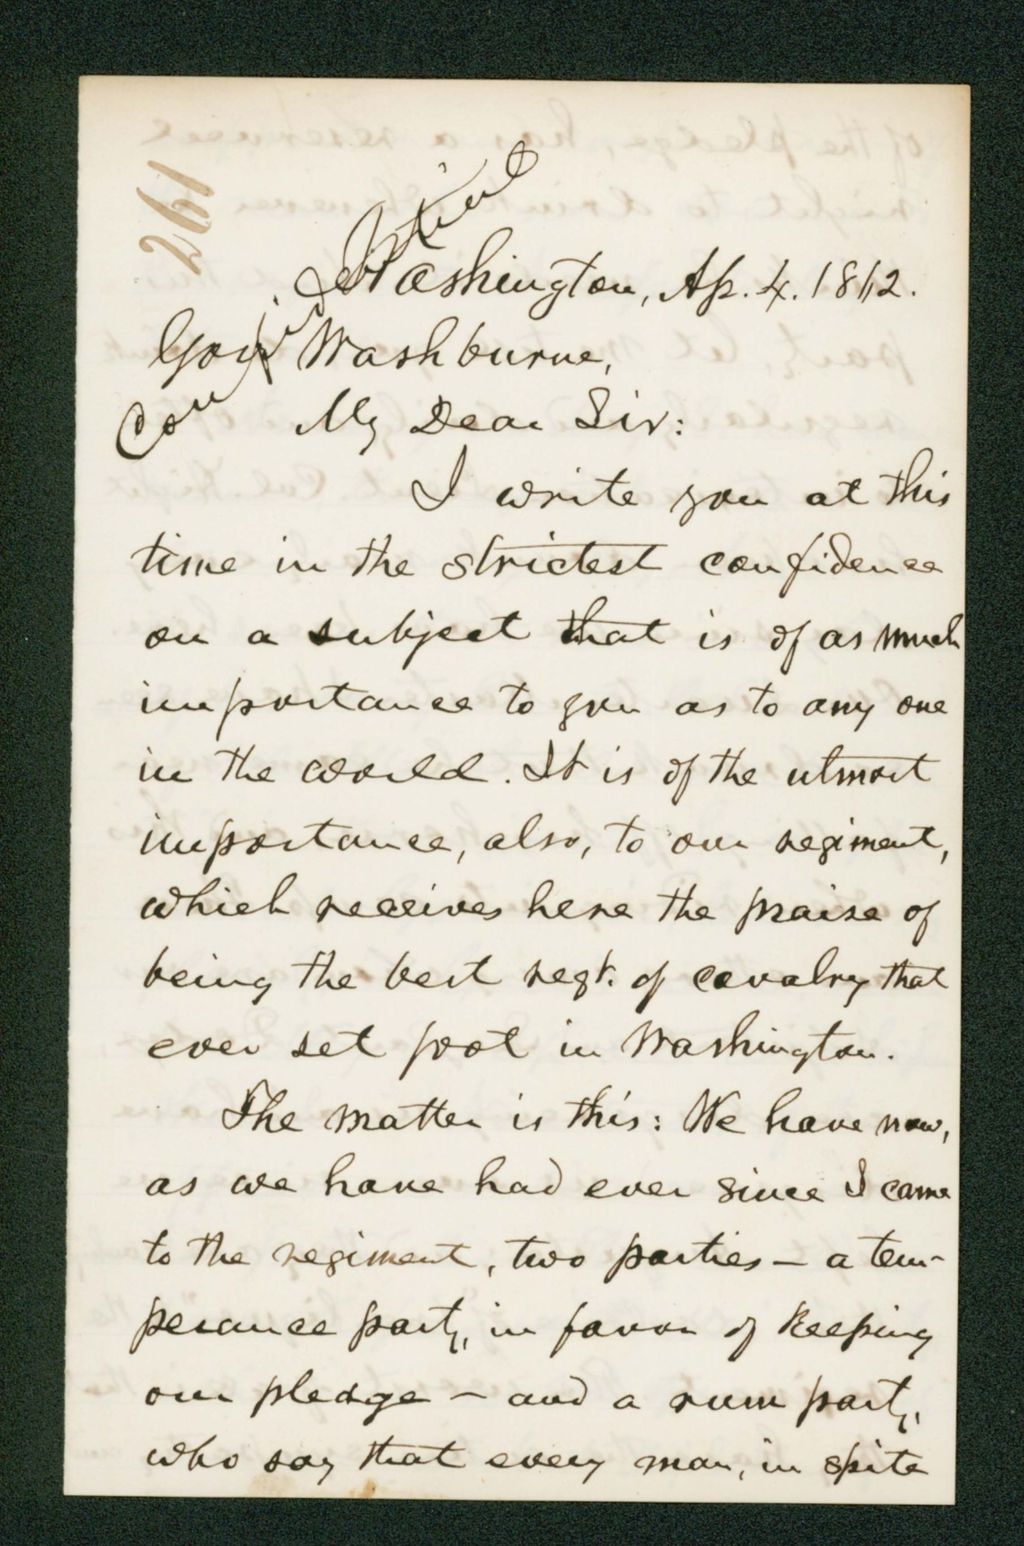 261
Confidential
Washington, Ap. 4. 1862.
Gov. Washburne,
My Dear Sir:
I write you at this
time in the strictest confidence
on a subject that is of as much
importance to you as to any one
in the world. It is of the utmost
importance, also, to our regiment,
which receives here the praise of
being the best regt. of cavalry that
ever set foot in Washington.
The matter is this: We have now,
as we have had ever since I came
to the regiment, two parties — a tem-
perance party, in favor of keeping
our pledge — and a rum party,
who say that every man, in spite